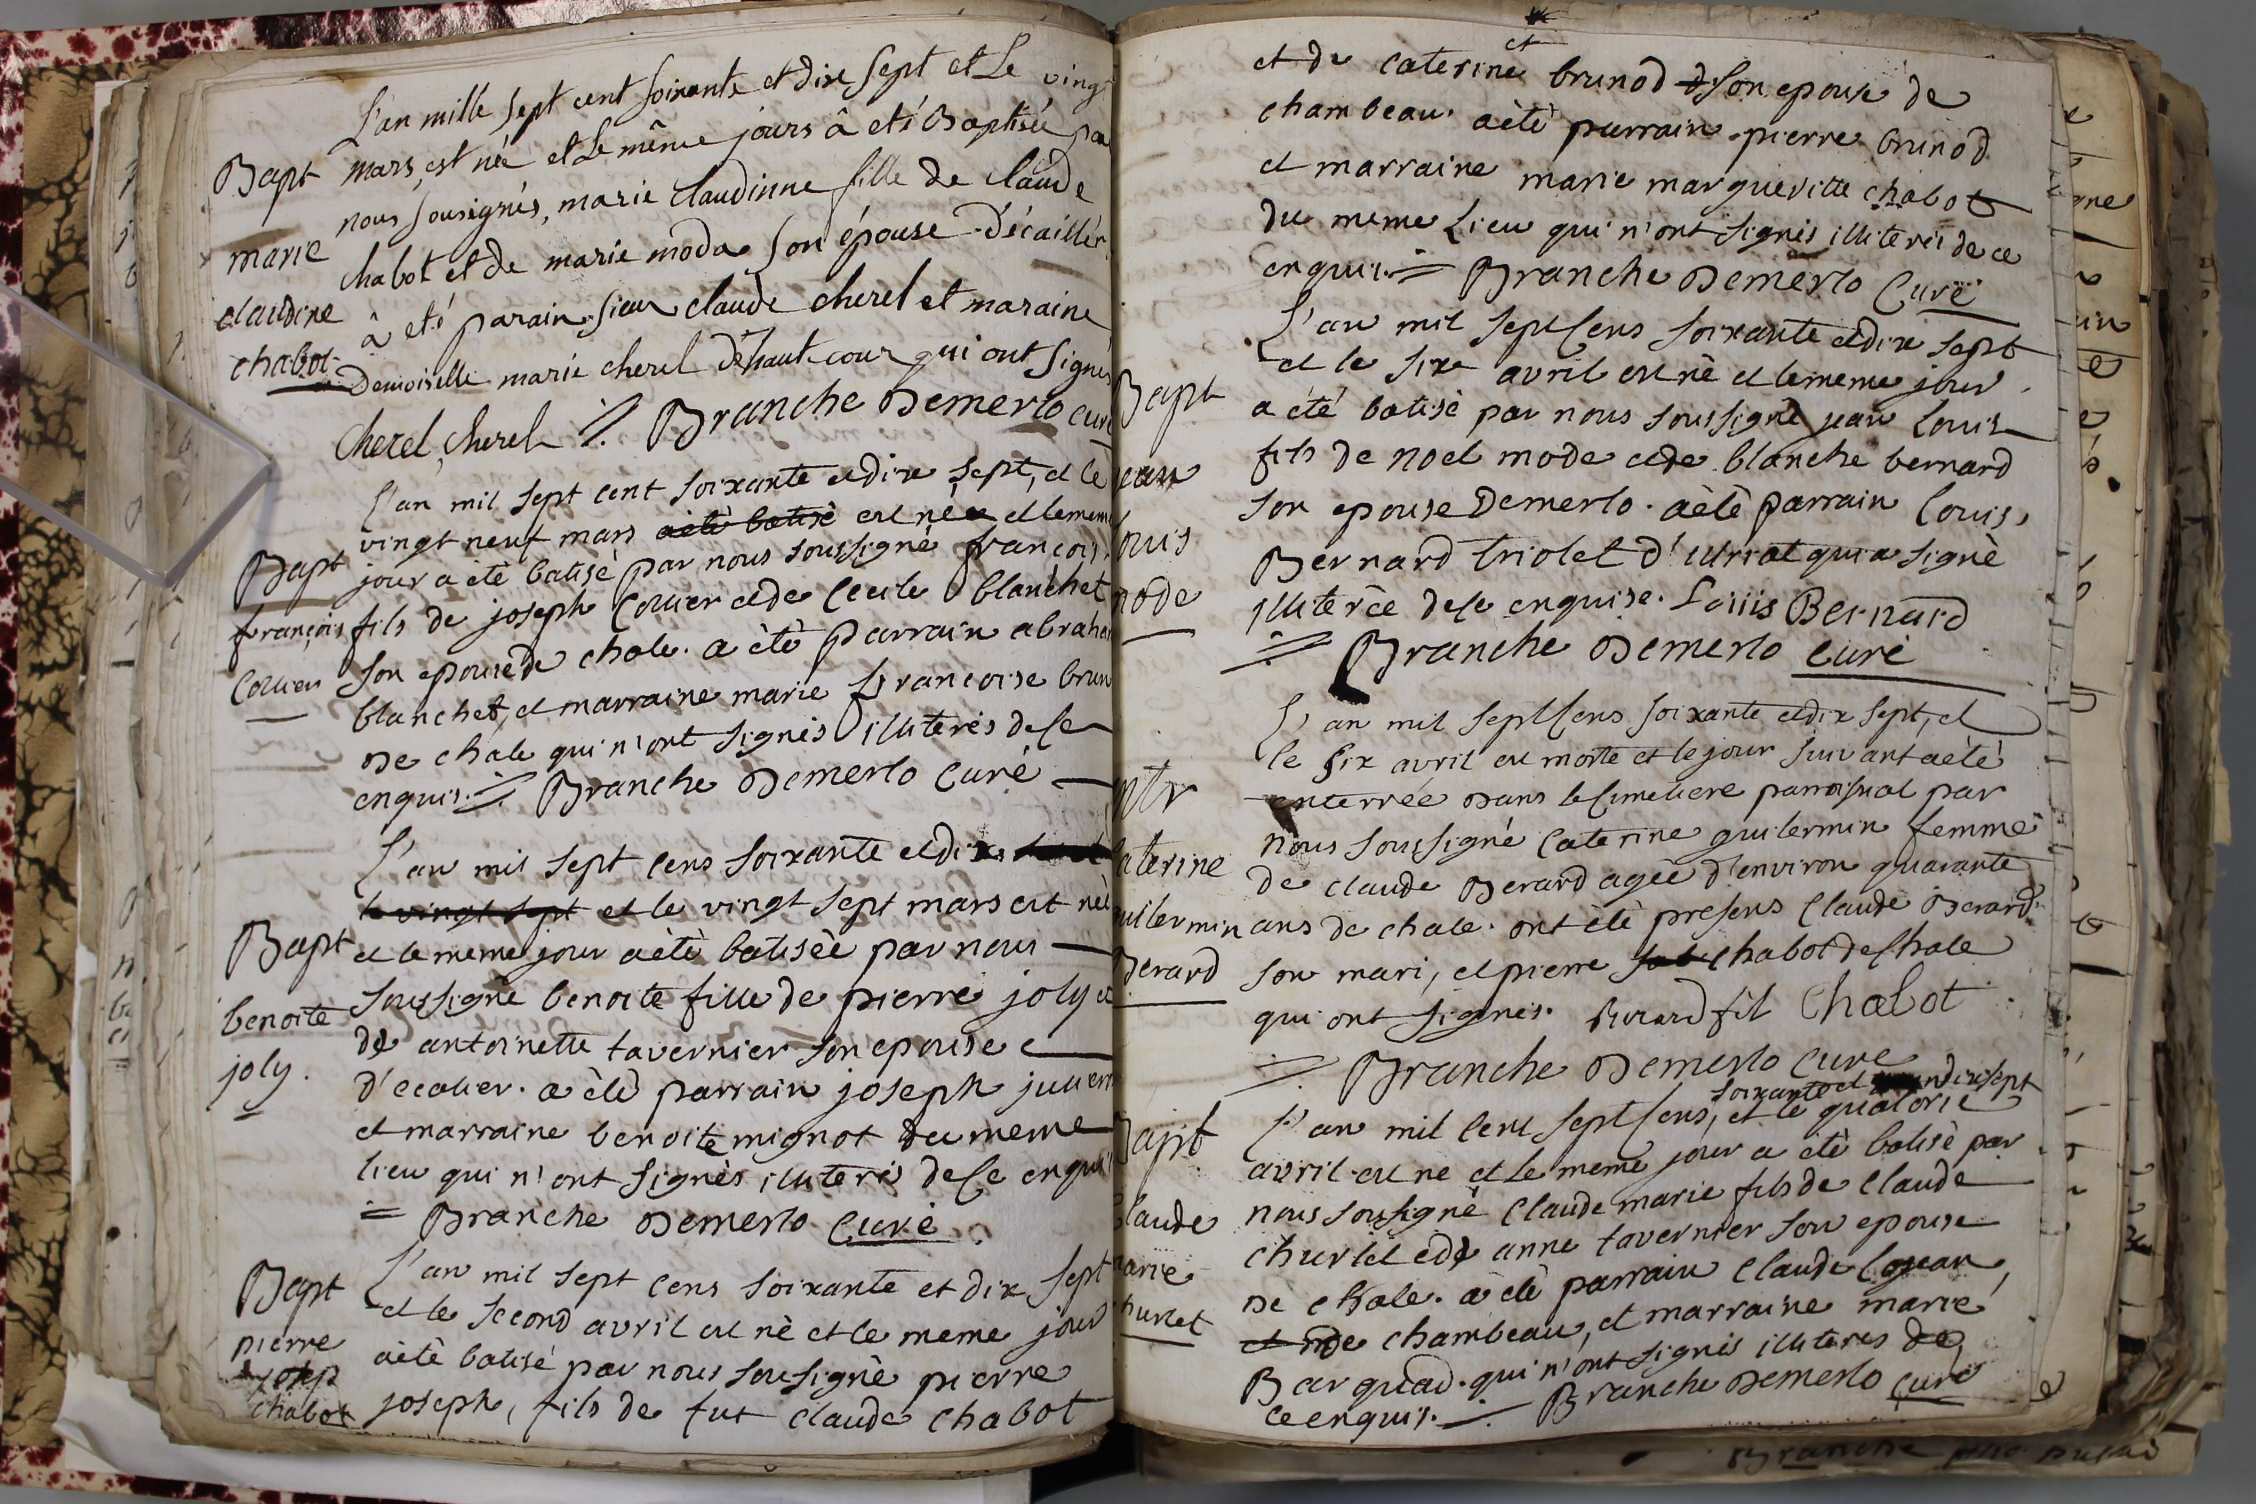 L'an mille sept cent soixante et dix sept et Le vingt
Bapt mars est née et Le même jours â eté Baptisée par
nous sousignés, marie Claudinne fille de Claude
marie chabot et de marie moda son épouse d'écaillér
claudine â eté parain sieur claude cherel et maraine
chabot Demoiselle marie cherel d'haute cour qui ont signés
Cherel, cherel Branche Demerlo curé
L'an mil sept cent soixante et dix sept, et le
vingt neuf mars a èté batisé est née et le meme
Bapt jour a èté batisè par nous soussigné françois
françois fils de joseph Collier et de Cecile blanchet
Collier son epouse de chale. a èté parrain abraham
blanchet, et marraine marie françoise brun
De chale qui n'ont signés illiterés de ce
enquis. Branche Demerlo Curé
L'an mil sept cens soixante et dix
le vingt sept et le vingt sept mars est nèè
Bapt et le meme jour a èté batisèe par nous
soussigné benoite fille de pierre joly et
benoite de antoinette tavernier son epouse
joly. d'ecalier. a èté parrain joseph
et marraine benoite mignot du meme
lieu qui n'ont signès illiterés de ce enquis
Branche Demerlo Curé
Bapt L'an mil sept cens soixante et dix sept
pierre et le second avril est nè et le meme jour
josep a èté batisé par nous soussignè pierre
chabot joseph, fils de fut claude chabot
et de caterine brunod et son epouse de
chambeau. a èté parrain pierre brunod
et marraine marie marguerite chabot
du meme Lieu qui n'ont signés illiterés de ce
enquis. Branche Demerlo Curé
L'an mil sept Cens soixante et dix sept
et le six avril est nè et le meme jour
Bapt a été batisè par nous soussigné jean Louis
jean fils de noel mode et de blanche bernard
son epouse Demerlo. a èté parrain Louis
Louis Bernard triolet d' qui a signè
mode illiterèe de ce enquise. Louis Bernard
Branche Demerlo curé
L'an mil sept Cens soixante et dix sept, et
le six avril est morte et le jour suivant a èté
entr enterrèe Dans le Cimetiere parroissial par
Caterine nous soussigné Caterine guilermin femme
de claude Berard agèe d'environ quarante
guilermin ans de chale. ont èté presens Claude Berard
Berard son mari, et pierre chabot de Chale
qui ont signés. Berard fil Chabot
Branche Demerlo Cure
soixante et dix sept
Bapt L'an mil cent sept Cens, et le quatorie
avril est ne et le meme jour a èté batisè par
Claude nous soussigné Claude marie fils de Claude
marie churlet et de anne tavernier son epouse
De chale. a èté parrain Claude
churlet et mde chambeau, et marraine marie
Barquad. qui n'ont signés illiteres de
ce enquis. Branche Demerlo Curé